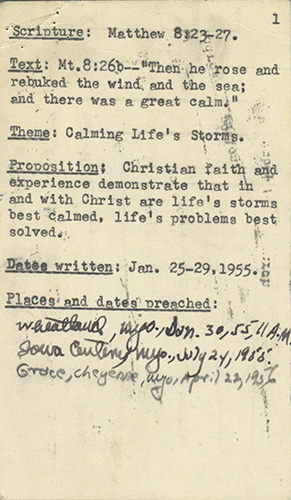 1
Scripture: Matthew 8:23-27.
Text: Mt.8:26b--"Then he rose and
rebuked the wind and the sea;
and there was a great calm."
Theme: Calming Life's Storms.
Proposition: Christian faith and
experience demonstrate that in
and with Christ are life's storms
best calmed, life's problems best
solved.
Dates written: Jan. 25-29,1955.
Places and dates preached:
Wheatland, Wyo., Jan. 30, 55, 11 A.M.
Iowa Center, Wyo., July 24, 1955.
Grace, Cheyenne, Wyo., April 22, 1956